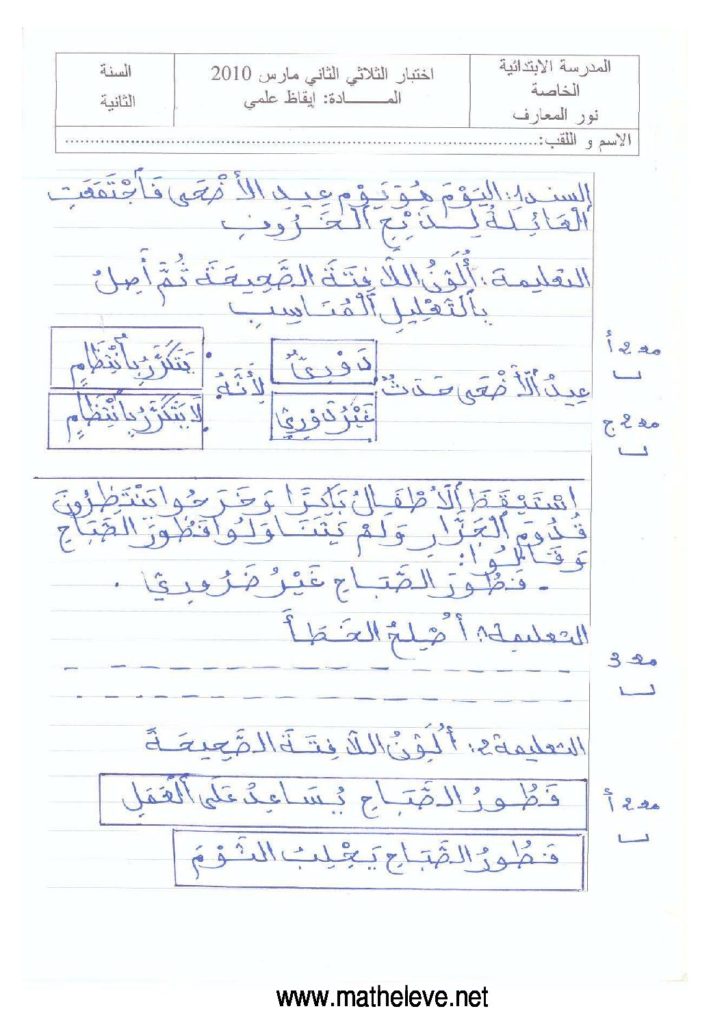 المدرسة الابتدائية
الخاصة
نور المعارف
اختبار الثلاثي الثاني مارس 2010
المــــــادة: إيقاظ علمي
السنة
الثانية
الاسم و اللقب:......................................................................
السند1: اَلْيَوْمَ هُوَ يَوْمِ عِيدِ الأَضْحَى فَاجْتَمَعَتِ
الْعَائِلَةُ لِذَبْحِ الْخَرُوفِ
التعليمة: أُلَوِّنُ اللاَّفِتَةَ الصَّحِيحَةَ ثُمَّ أَصِلُ
بِالتَّعْلِيلِ الْمُنَاسِبِ
مع 2 أ
دَوْرِيٌّ
يَتَكَرَّرُ بِانْتِظَامٍ
عِيدُ الأَضْحَى حَدَثٌ: لِأَنَّهُ:
مع 2 ج
غَيْرُ دَوْرِيٍّ
لاَ يَتَكَرَّرُ بِانْتِظَامٍ
اِسْتَيْقَظَ الأَطْفَالُ بَاكِرًا وَخَرَجُوا يَنْتَظِرُونَ
قُدُومَ الْجَزَّارِ وَلَمْ يَتَنَاوَلُوا فَطُورَ الصَّبَاحِ
وَقَالُوا:
- فَطُورُ الصَّبَاحِ غَيْرُ ضَرُورِيٍّ.
التعليمة1: أُصْلِحُ الخَطَأَ
مع 3
التعليمة2: أُلَوِّنُ اللاَّفِتَةَ الصَّحِيحَةَ
فَطُورُ الصَّبَاحِ يُسَاعِدُ عَلَى الْعَمَلِ
مع 2 أ
فَطُورُ الصَّبَاحِ يَجْلِبُ النَّوْمَ
www.matheleve.net